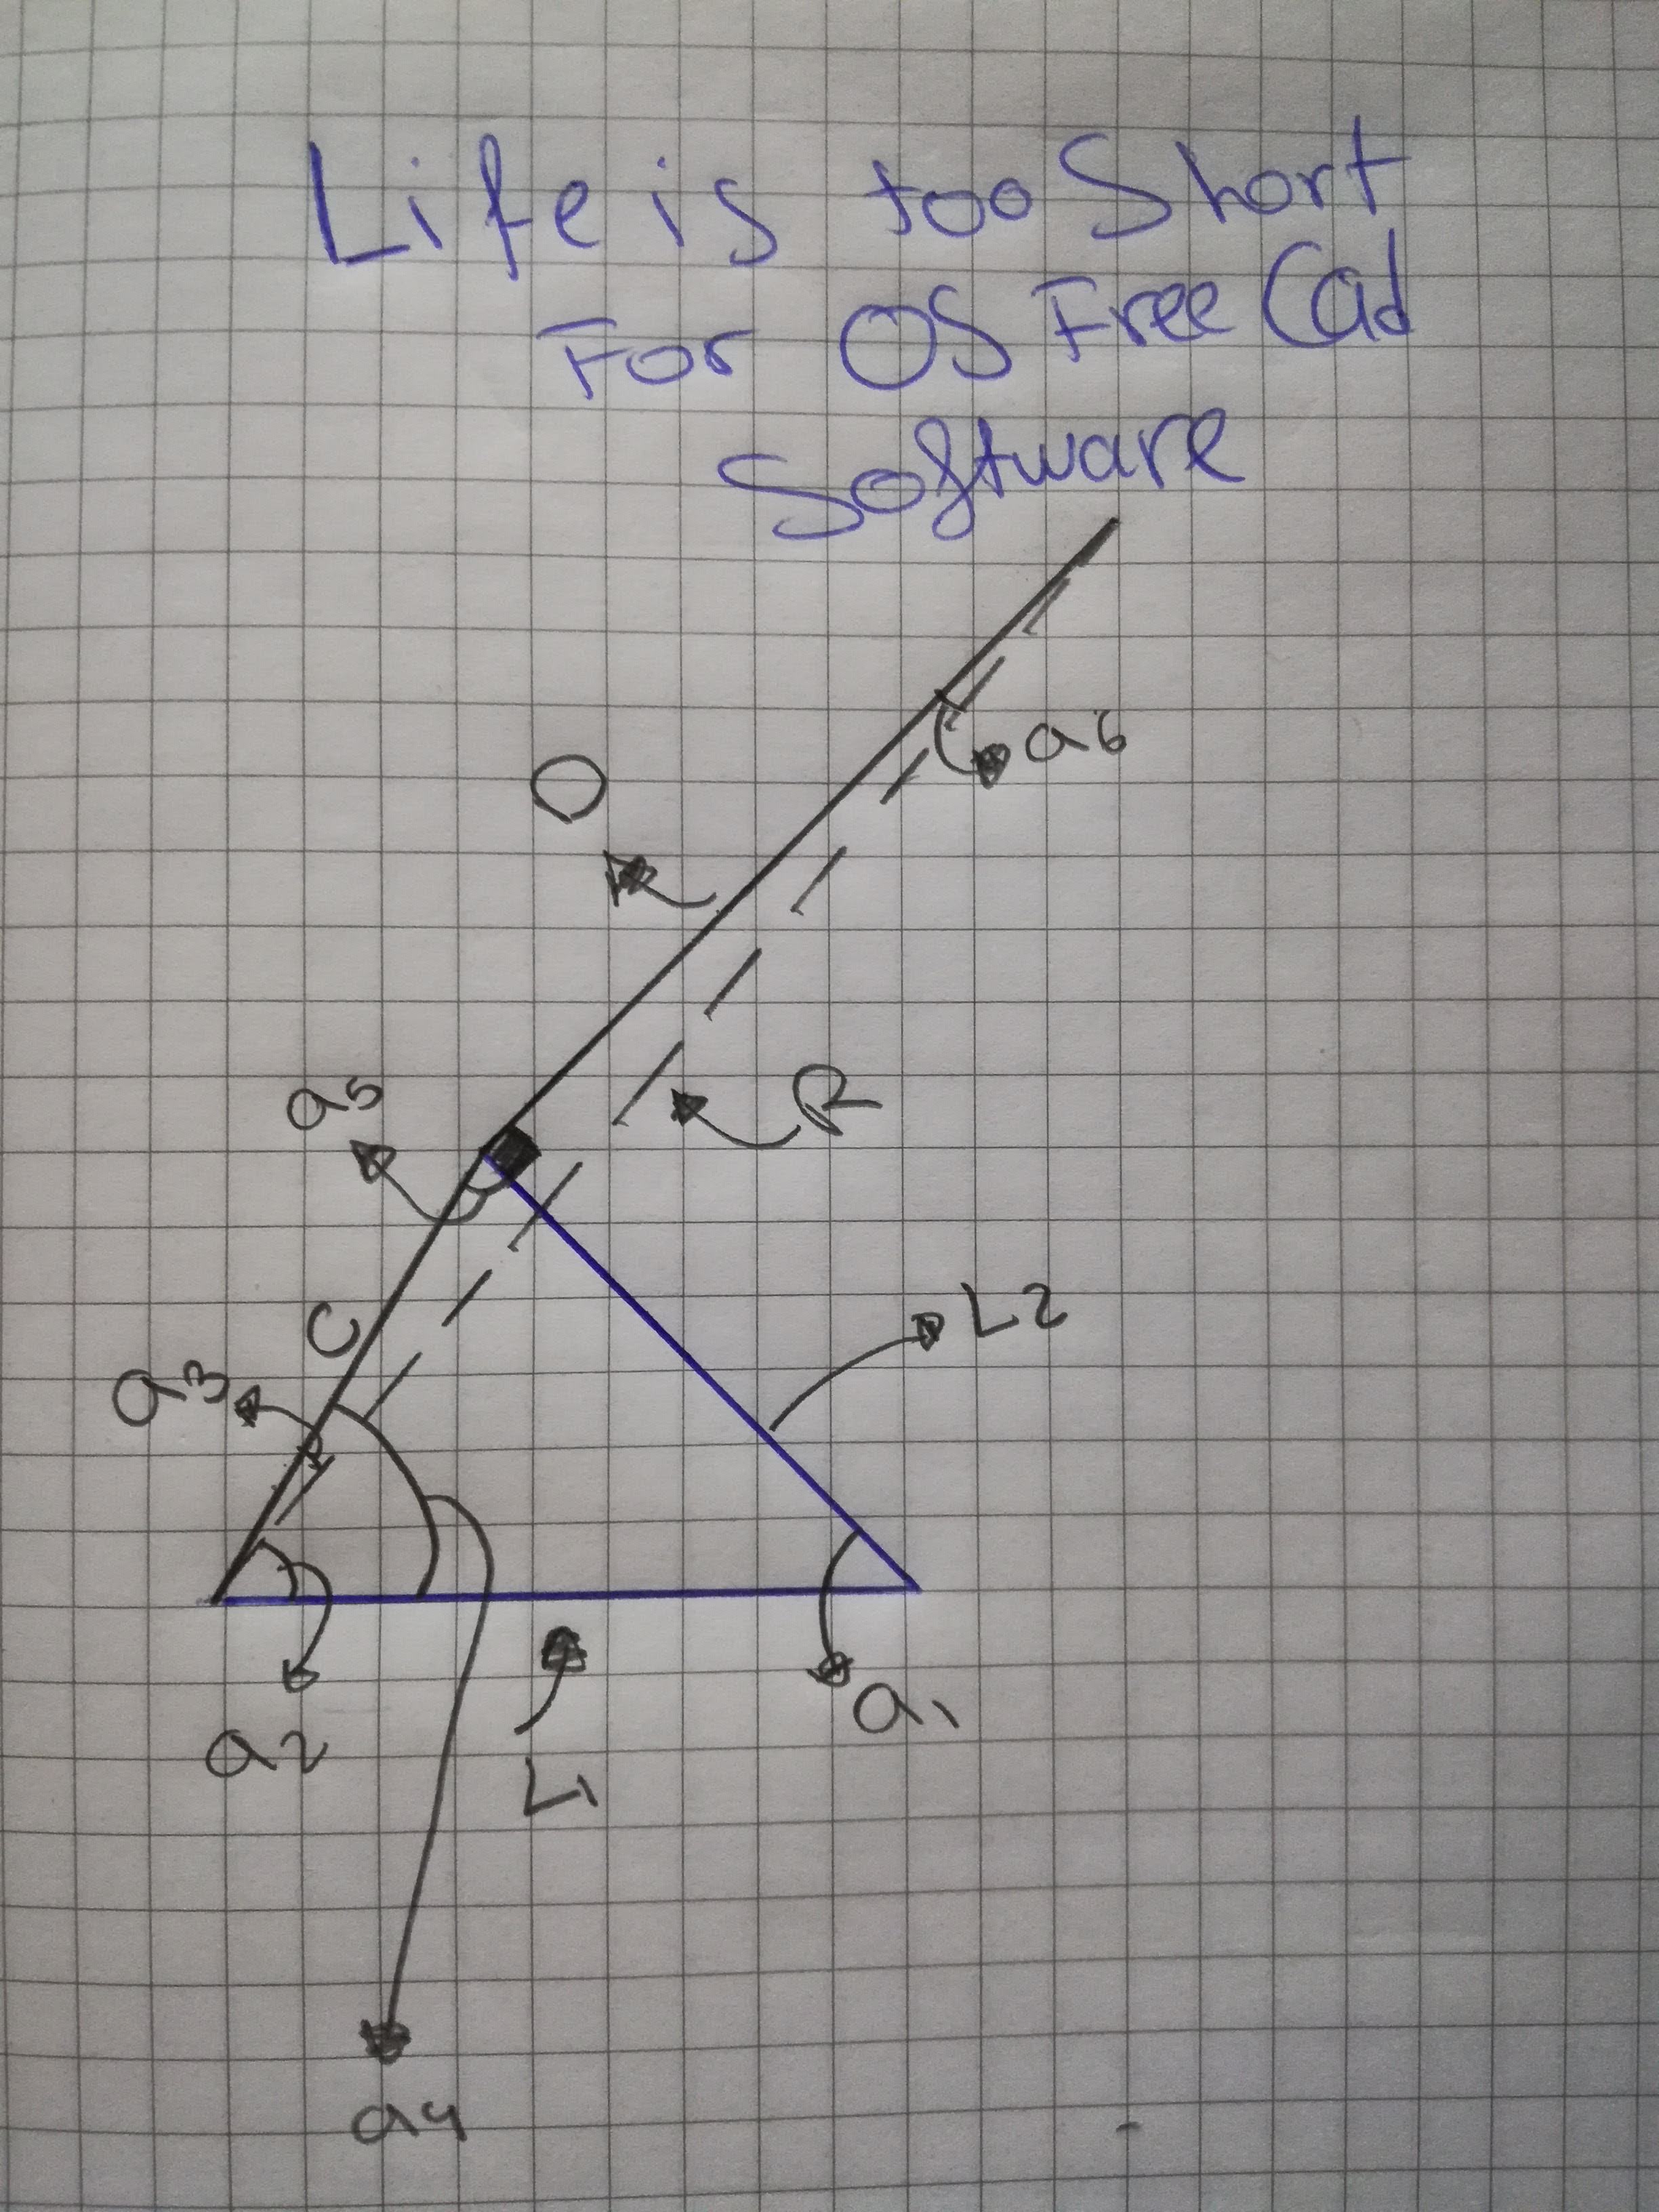 Life is too Short
For OS Free Cad
Software
O
a6
a5
R
L2
C
a3
a2
L1
a1
a4